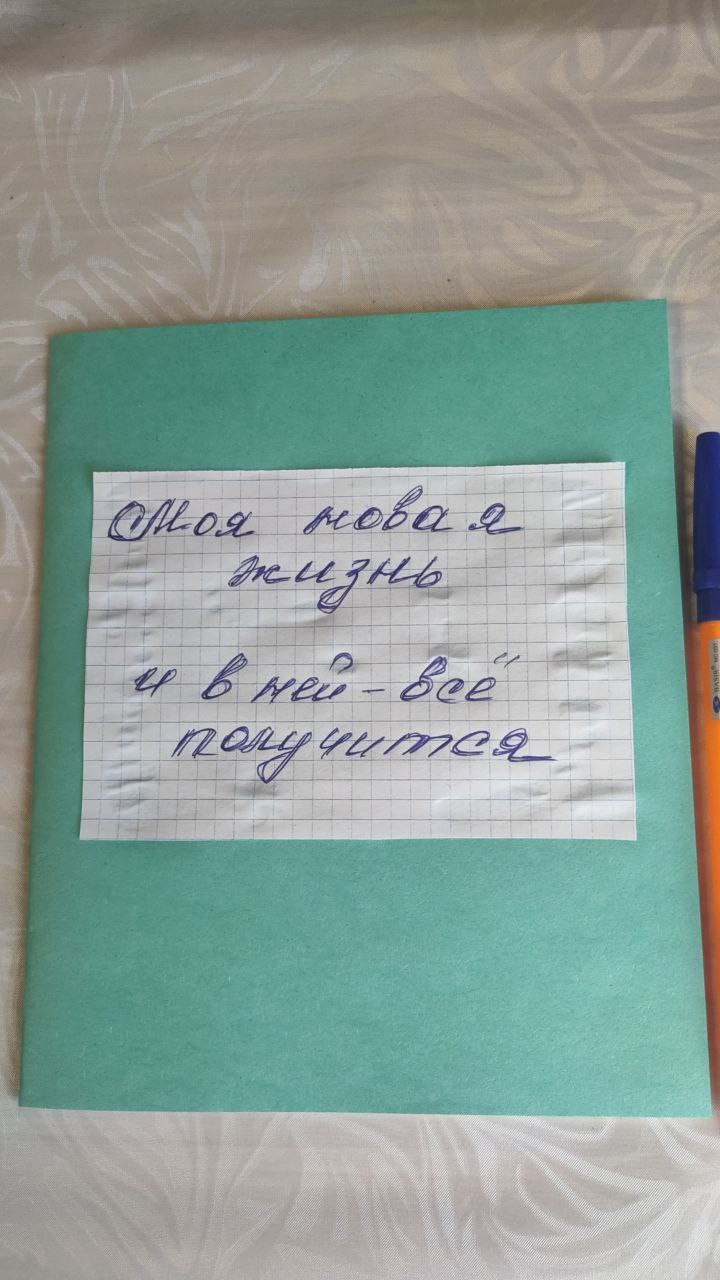 Моя новая
жизнь
и в ней - всё
получится